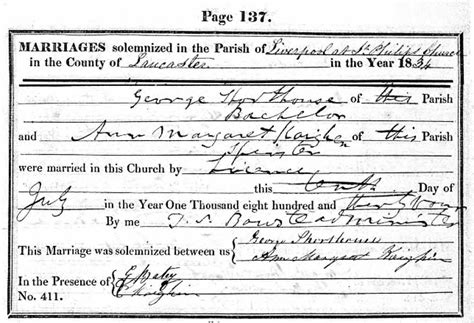 Page 137.
MARRIAGES solemnized in the Parish of Liverpool at St Philips Church
in the County of Lancaster in the Year 1834
George Shorthouse of this Parish
Bachelor
and Ann Margaret Kaighin of this Parish
Spinster
were married in this Church by Licence
this Tenth Day of
July in the Year One Thousand eight hundred and thirty four
By me T. S. Minister
This Marriage was solemnized between us George Shorthouse
Ann Margaret Kaighin
In the Presence of
No. 411.